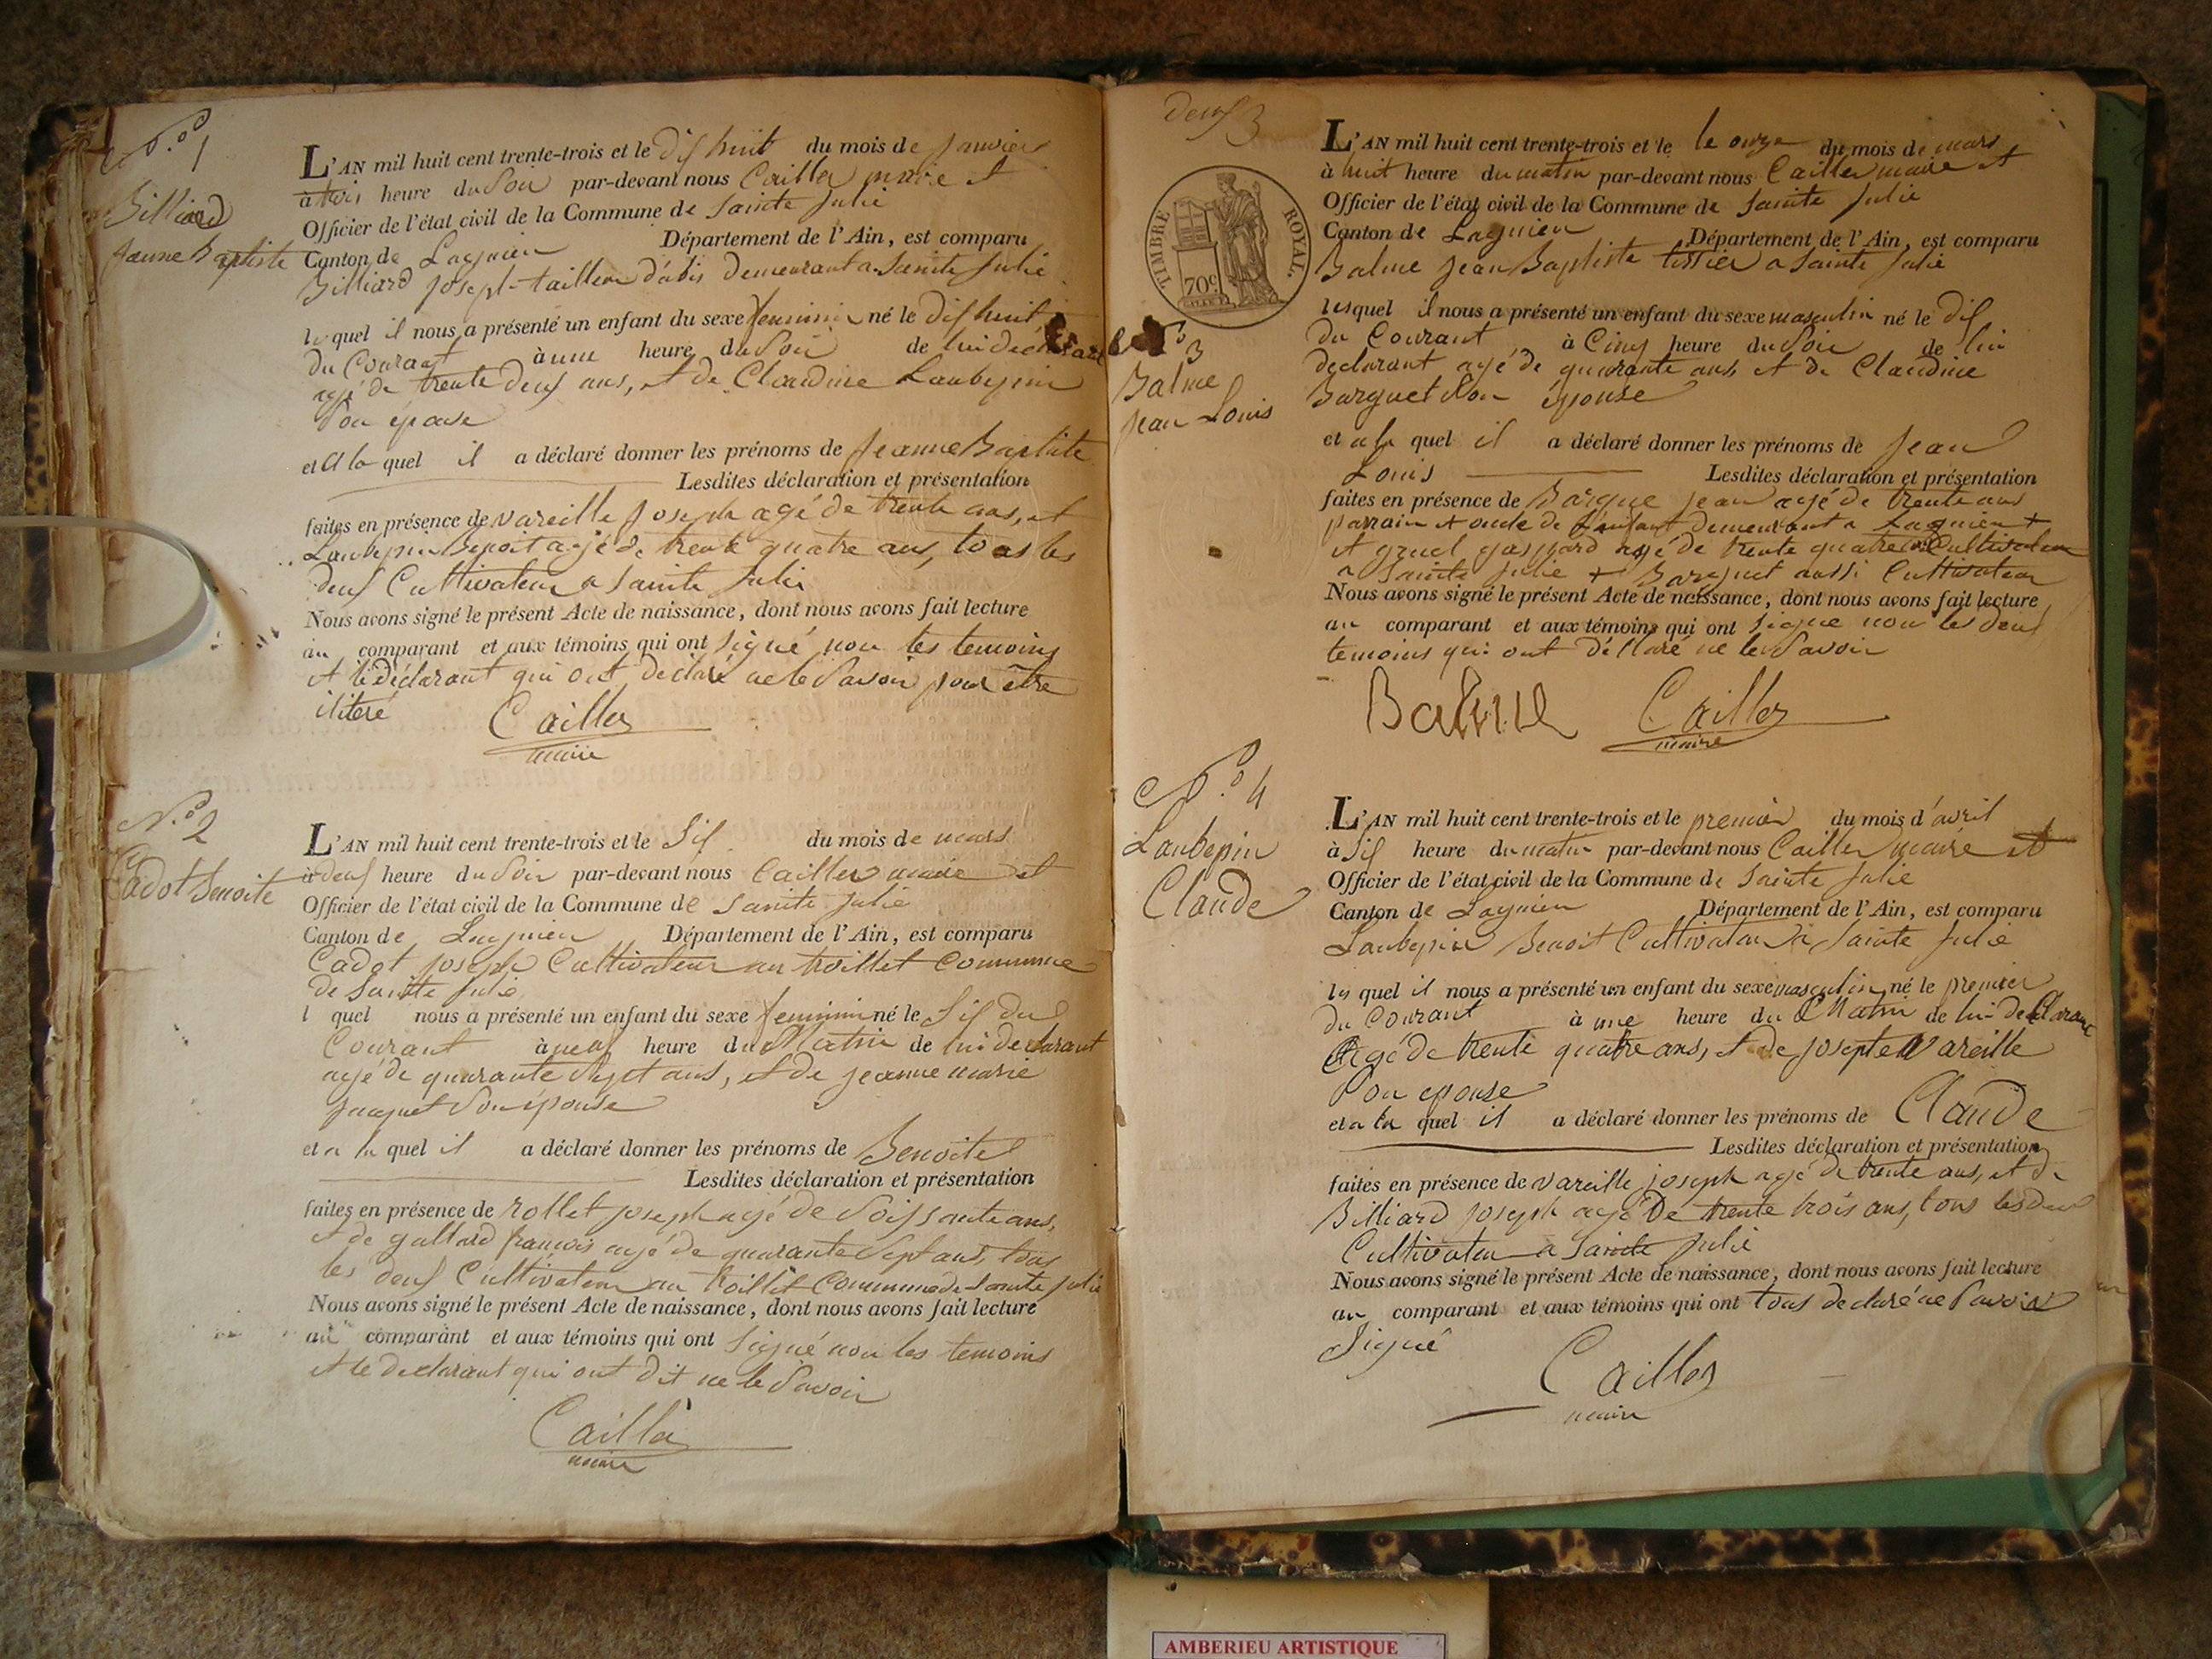 N.o 1
Billiard
Jeanne Baptiste
L'AN mil huit cent trente-trois et le dix huit du mois de Janvier
à trois heure du Soir par-devant nous Cailler maire et
Officier de l'état civil de la Commune de Sainte Julie
Canton de Lagnieu Département de l'Ain, est comparu
Billiard joseph tailleur d'abis demeurant a Sainte Julie
le quel il nous a présenté un enfant du sexe feminin né le dix huit
du Courant à une heure du Soir de lui declarant
agé de trente deux ans, et de Claudine Laubepin
Son épouse
et A la quel il a déclaré donner les prénoms de Jeanne Baptiste
Lesdites déclaration et présentation
faites en présence de vareille Joseph agé de trente ans, et
Laubepin Benoit agé de trente quatre ans, tous les
deux Cultivateur a Sainte Julie
Nous avons signé le présent Acte de naissance, dont nous avons fait lecture
au comparant et aux témoins qui ont Signé non les temoins
et le déclarant qui ont declaré ne le Savoir pour être
ilitéré
Cailler
maire
N.o 2
Cadot Benoite
L'AN mil huit cent trente-trois et le Six du mois de mars
à deux heure du Soir par-devant nous Cailler maire et
Officier de l'état civil de la Commune de Sainte Julie
Canton de Lagnieu Département de l'Ain, est comparu
Cadot joseph Cultivateur au trollet Commune
de Sainte Julie
l quel nous a présenté un enfant du sexe feminin né le Six du
Courant à neuf heure du Matin de lui declarant
agé de quarante Sept ans, et de jeanne marie
jacquet Son épouse
et a la quel il a déclaré donner les prénoms de Benoite
Lesdites déclaration et présentation
faites en présence de rollet joseph agé de Soissante ans,
et de gallard françois agé de quarante Sept ans, tous
les deux Cultivateur au trollet Commune de Sainte Julie
Nous avons signé le présent Acte de naissance, dont nous avons fait lecture
au comparant et aux témoins qui ont Signé non les temoins
et le declarant qui ont dit ne le Savoir
Cailler
maire
deux 3
TIMBRE ROYAL.
70c
N.o 3
Balme
Jean Louis
L'AN mil huit cent trente-trois et le le onze du mois de mars
à huit heure du matin par-devant nous Cailler maire et
Officier de l'état civil de la Commune de Sainte Julie
Canton de Lagnieu Département de l'Ain, est comparu
Balme Jean Baptiste tissier a Sainte Julie
lesquel il nous a présenté un enfant du sexe masculin né le dix
du Courant à Cinq heure du Soir de lui
declarant agé de quarante ans, et de Claudine
Barquet Son épouse
et a la quel il a déclaré donner les prénoms de Jean
Louis Lesdites déclaration et présentation
faites en présence de Barque Jean agé de trente ans
parrain et oncle de l'enfant demeurant a Lagnieu +
et gruel gaspard agé de trente quatre Cultivateur
a Sainte Julie + Barquet aussi Cultivateur
Nous avons signé le présent Acte de naissance, dont nous avons fait lecture
au comparant et aux témoins qui ont signe non les deux
temoins qui ont Déclaré ne le Savoir
Balme Cailler
maire
N.o 4
Laubepin
Claude
L'AN mil huit cent trente-trois et le premier du mois d'avril
à Six heure du matin par-devant nous Cailler maire et
Officier de l'état civil de la Commune de Sainte Julie
Canton de Lagnieu Département de l'Ain, est comparu
Laubepin Benoit Cultivateur à Sainte Julie
le quel il nous a présenté un enfant du sexe masculin né le premier
du Courant à une heure du Matin de lui declarant
Agé de trente quatre ans, et de josepte Vareille
Son epouse
et a la quel il a déclaré donner les prénoms de Claude
Lesdites déclaration et présentation
faites en présence de vareille joseph agé de trente ans, et de
Billiard joseph agé De trente trois ans, tous les deux
Cultivateur a Sainte Julie
Nous avons signé le présent Acte de naissance, dont nous avons fait lecture
au comparant et aux témoins qui ont tous declaré ne Savoir
Signé
Cailler
maire
AMBERIEU ARTISTIQUE